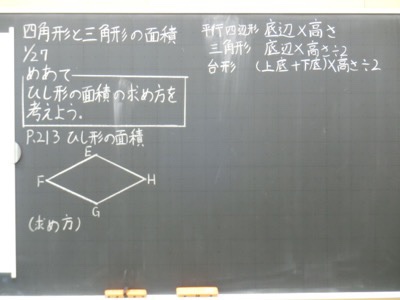 四角形と三角形の面積
1/27
めあて
ひし形の面積の求め方を
考えよう.
P.213 ひし形の面積
E
F
H
G
(求め方)
平行四辺形 底辺×高さ
三角形 底辺×高さ÷2
台形 (上底+下底)×高さ÷2